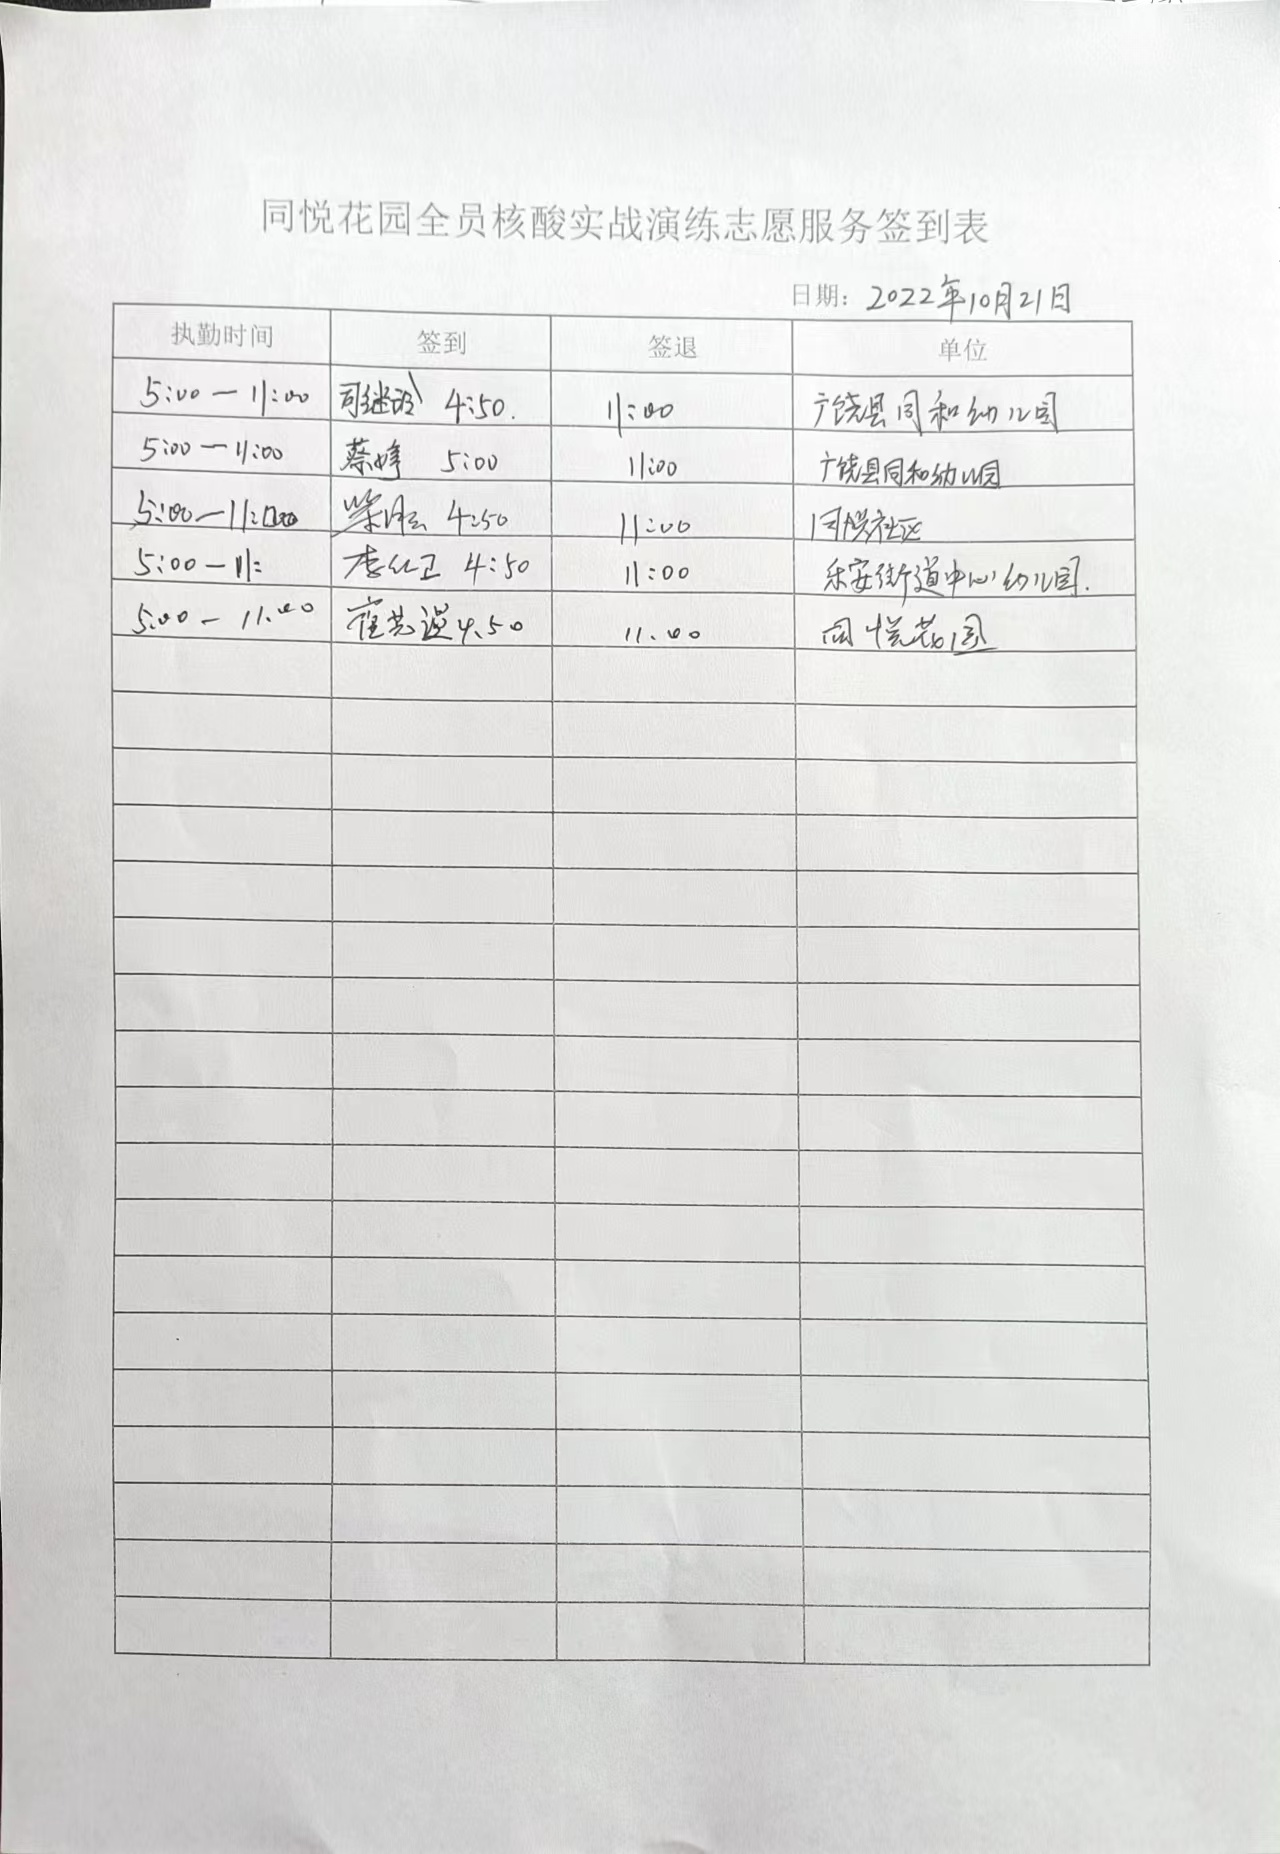 同悦花园全员核酸实战演练志愿服务签到表
日期：2022年10月21日
执勤时间 签到 签退 单位
5:00—11:00 司继 4:50. 11:00 广饶县同和幼儿园
5:00—11:00 蔡婷 5:00 11:00 广饶县同和幼儿园
5:00—11:00 4:50 11:00 同悦社区
5:00—11: 李红卫 4:50 11:00 乐安街道中心幼儿园.
5:00—11.00 崔 4.50 11.00 同悦花园